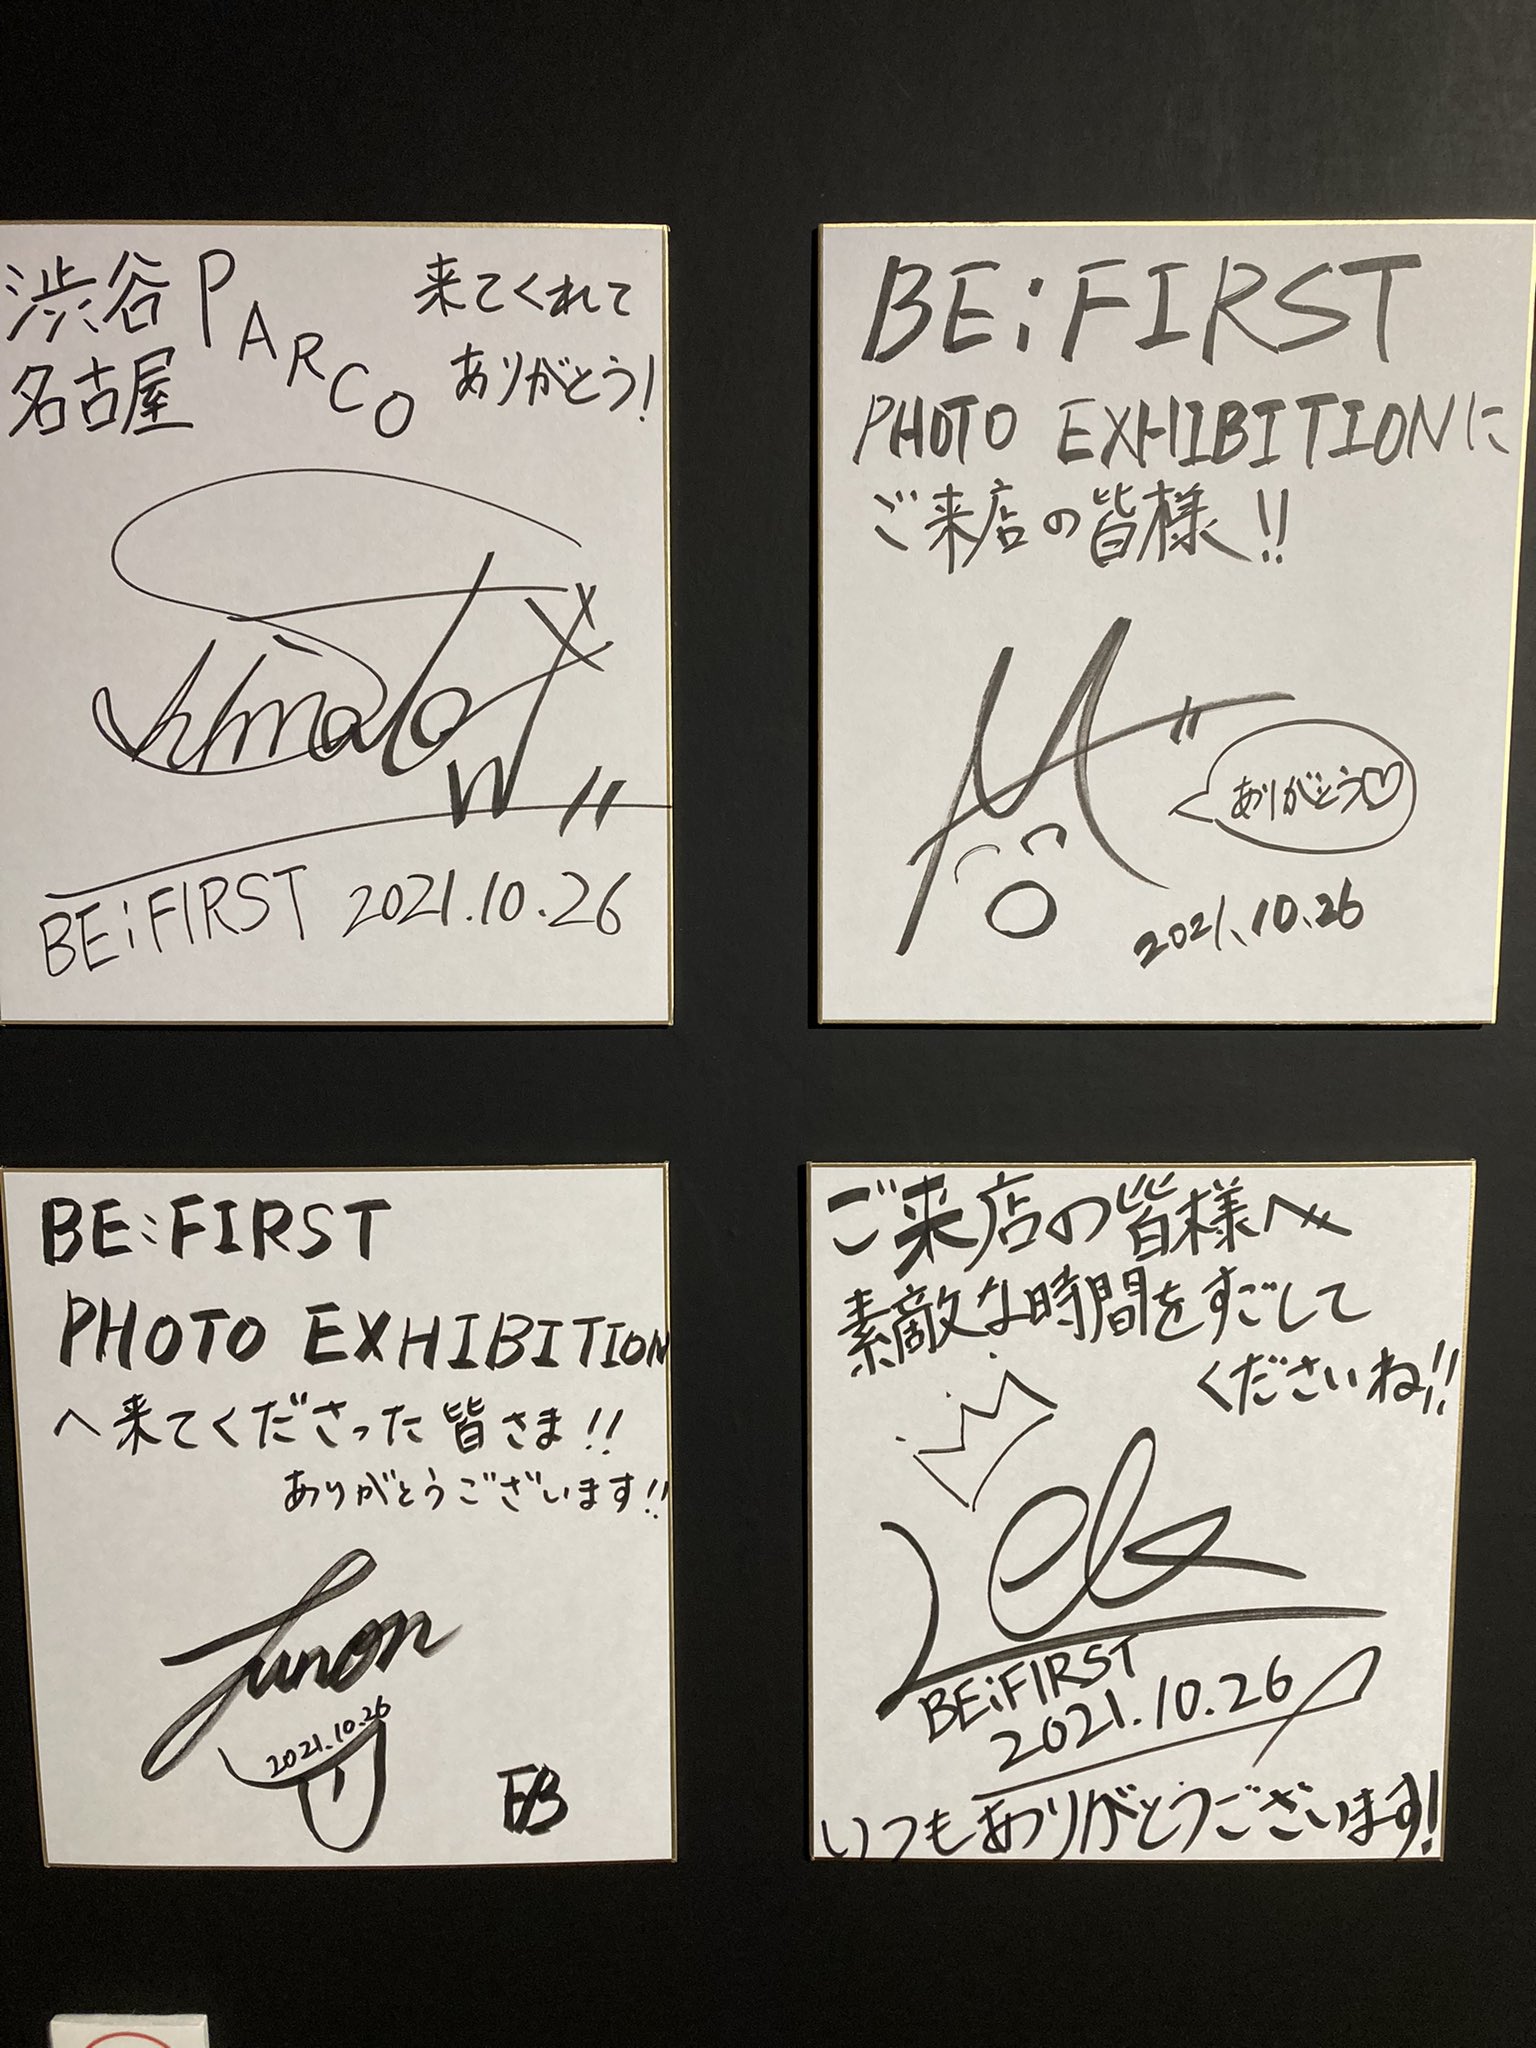 渋谷 PARCO
名古屋
来てくれて
ありがとう!
BE:FIRST 2021.10.26
BE:FIRST
PHOTO EXHIBITIONに
ご来店の皆様!!
ありがとう♡
2021.10.26
BE:FIRST
PHOTO EXHIBITION
へ来てくださった皆さま!!
ありがとうございます!!
Junon
2021.10.26
ご来店の皆様へ
素敵な時間をすごして
くださいね!!
Leo
BE:FIRST
2021.10.26
いつもありがとうございます!